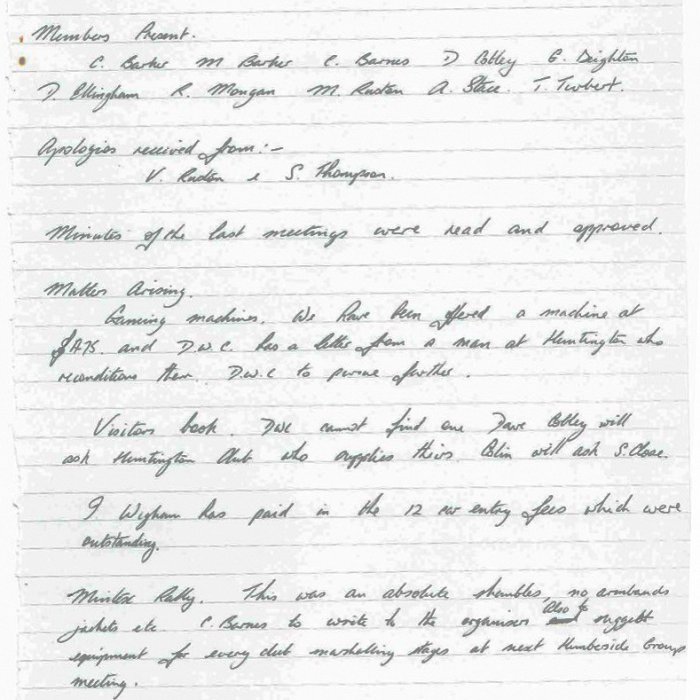 Members Present.
C. Barker M Barker C. Barnes D Cobley G. Deighton
D. Ellingham R. Mongan M. Ruston A. Stace. T. Turbert.
Apologies received from:-
V. Ruston & S. Thompson.
Minutes of the last meetings were read and approved.
Matters Arising.
Gaming machines. We have been offered a machine at
and D.W.C. has a letter from a man at Huntington who
reconditions them. D.W.C to pursue further.
Visitors book. DWC cannot find one Dave Cobley will
ask Huntington Club who supplies theirs. Colin will ask S. Close.
I Wigham has paid in the 12 car entry fees which were
outstanding.
Mintex Rally. This was an absolute shambles, no armbands
jackets etc. C. Barnes to write to the organiser Also to suggest
equipment for every club marshalling stages at next Humberside Group
meeting.